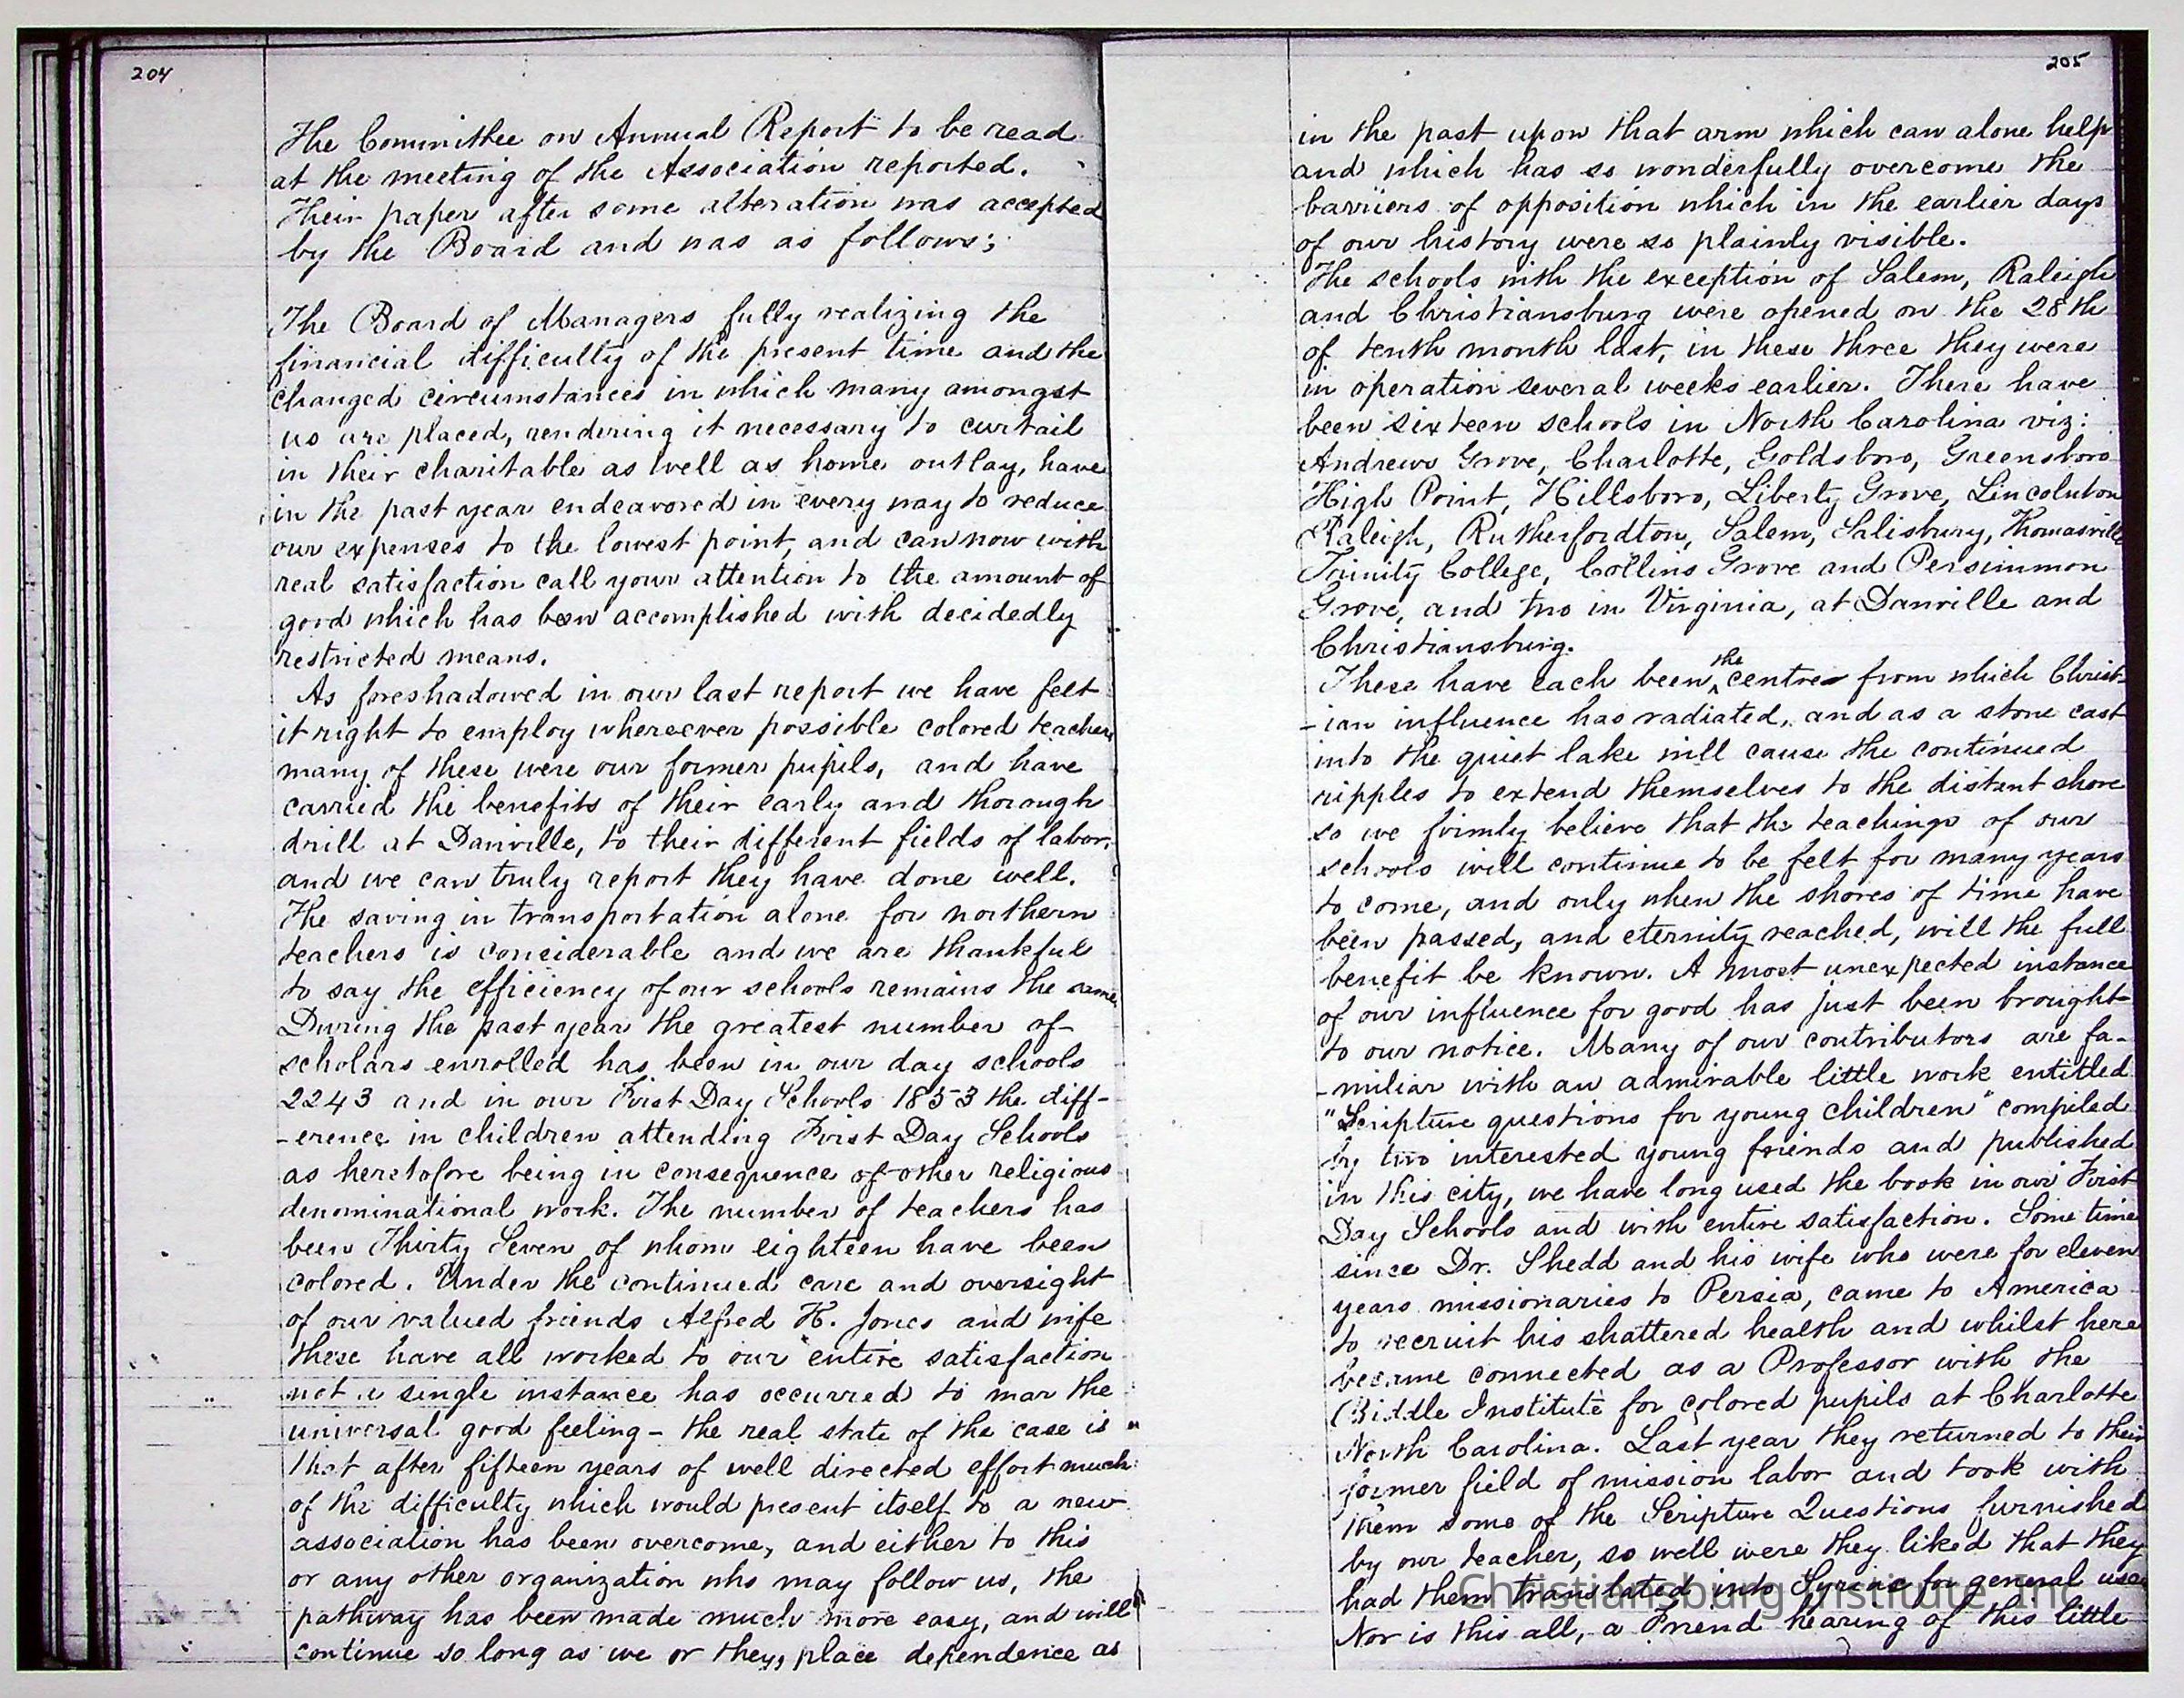 204
The Committee on Annual Report to be read
at the meeting of the Association reported.
Their paper after some alteration was accepted
by the Board and was as follows;
The Board of Managers fully realizing the
financial difficulty of the present time and the
changed circumstances in which many amongst
us are placed, rendering it necessary to curtail
in their charitable as well as home outlay, have
in the past year endeavored in every way to reduce
our expenses to the lowest point, and can now with
real satisfaction call your attention to the amount of
good which has been accomplished with decidedly
restricted means.
As foreshadowed in our last report we have felt
it right to employ whereever possible colored teachers
many of these were our former pupils, and have
carried the benefits of their early and thorough
drill at Danville, to their different fields of labor,
and we can truly report they have done well.
The saving in transportation alone for northern
teachers is considerable and we are thankful
to say the efficiency of our schools remains the same,
During the past year the greatest number of
scholars enrolled has been in our day schools
2243 and in our First Day Schools 1853 the diff-
-erence in children attending First Day Schools
as heretofore being in consequence of other religious
denominational work. The number of teachers has
been Thirty Seven of whom eighteen have been
colored. Under the continued care and oversight
of our valued friends Alfred H. Jones and wife
these have all worked to our entire satisfaction
not a single instance has occurred to mar the
universal good feeling - the real state of the case is
that after fifteen years of well directed effort much
of the difficulty which would present itself to a new
association has been overcome, and either to this
or any other organization who may follow us, the
pathway has been made much more easy, and will
continue so long as we or they, place dependence as
205
in the past upon that arm which can alone help
and which has so wonderfully overcome the
barriers of opposition which in the earlier days
of our history were so plainly visible.
The schools with the exception of Salem, Raleigh
and Christiansburg were opened on the 28th
of tenth month last, in these three they were
in operation several weeks earlier. There have
been sixteen schools in North Carolina viz:
Andrews Grove, Charlotte, Goldsboro, Greensboro
High Point, Hillsboro, Liberty Grove, Lincolnton
Raleigh, Rutherfordton, Salem, Salisbury, Thomasville
Trinity College, Collins Grove and Persimmon
Grove, and two in Virginia, at Danville and
Christiansburg.
These have each been the centre from which Christ-
-ian influence has radiated, and as a stone cast
into the quiet lake will cause the continued
ripples to extend themselves to the distant shore
so we firmly believe that the teachings of our
schools will continue to be felt for many years
to come, and only when the shores of time have
been passed, and eternity reached, will the full
benefit be known. A most unexpected instance
of our influence for good has just been brought
to our notice. Many of our contributors are fa-
-miliar with an admirable little work entitled
"Scripture questions for young children" compiled
by two interested young friends and published
in this city, we have long used the book in our First
Day Schools and with entire satisfaction. Some time
since Dr. Shedd and his wife who were for eleven
years missionaries to Persia, came to America
to recruit his shattered health and whilst here
became connected as a Professor with the
Biddle Institute for colored pupils at Charlotte
North Carolina. Last year they returned to their
former field of mission labor and took with
them some of the Scripture Questions furnished
by our teacher, so well were they liked that they
had them translated into Syriac for general use
Nor is this all, a Friend hearing of this little
Christiansburg Institute, Inc.